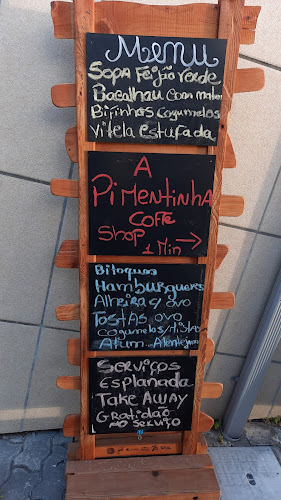 Menu
Sopa Feijão Verde
Bacalhau com natas
Bifinhos Cogumelos
Vitela Estufada
A
Pimentinha
Coffe
Shop 1 Min →
Bitoques
Hamburgueres
Alheira c/ ovo
Tostas ovo
cogumelos/Misto
Atum Alentejana
Serviços
Esplanada
Take Away
Gratidão
no Serviço